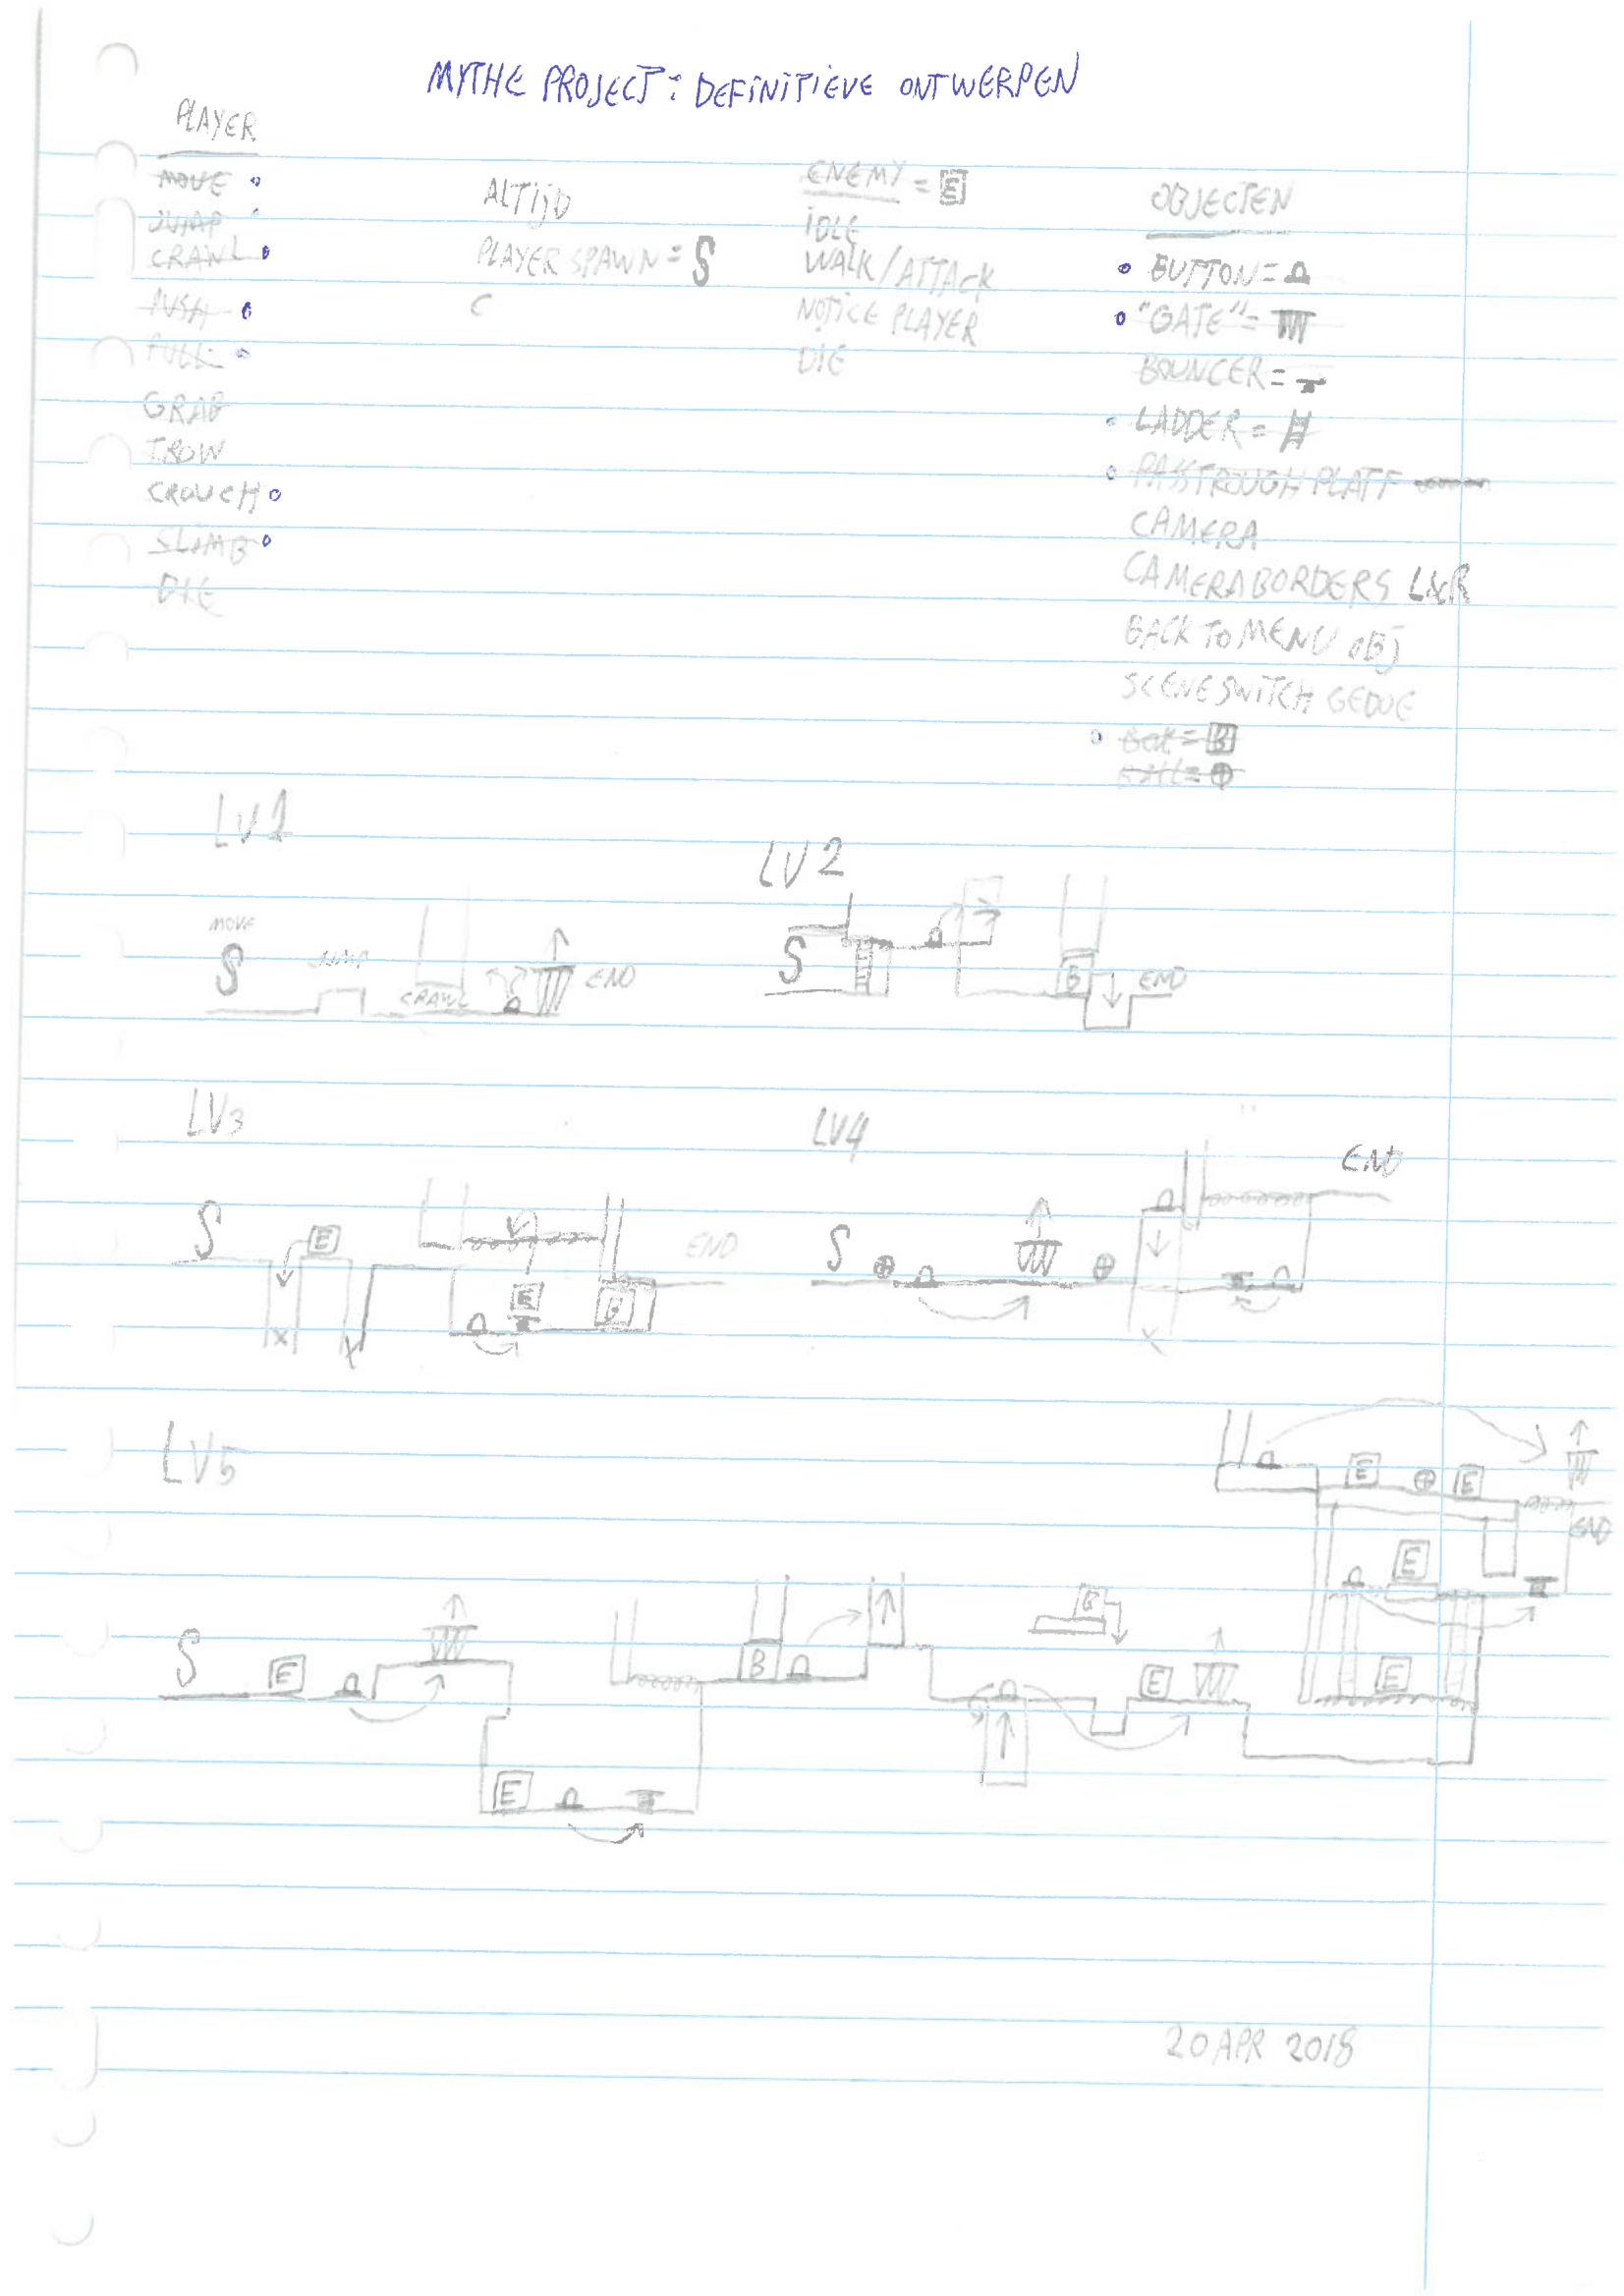 MYTHE PROJECT: DEFINITIEVE ONTWERPEN
PLAYER
MOVE
JUMP
CRAWL
PUSH
PULL
GRAB
TROW
CROUCH
SLIMB
DIE
ALTIJD
PLAYER SPAWN = S
C
ENEMY = E
IDLE
WALK/ATTACK
NOTICE PLAYER
DIE
OBJECTEN
BUTTON =
"GATE" =
BOUNCER =
LADDER =
PASSTROUGH PLATF
CAMERA
CAMERABORDERS L&R
BACK TO MENU OBJ
SCENE SWITCH GEDOE
BOX = B
BALL =
LV1
MOVE
S
JUMP
CRAWL
END
LV2
S
B
END
LV3
S
E
E
B
END
LV4
S
END
LV5
S
E
E
B
B
E
E
E
E
E
END
20 APR 2018